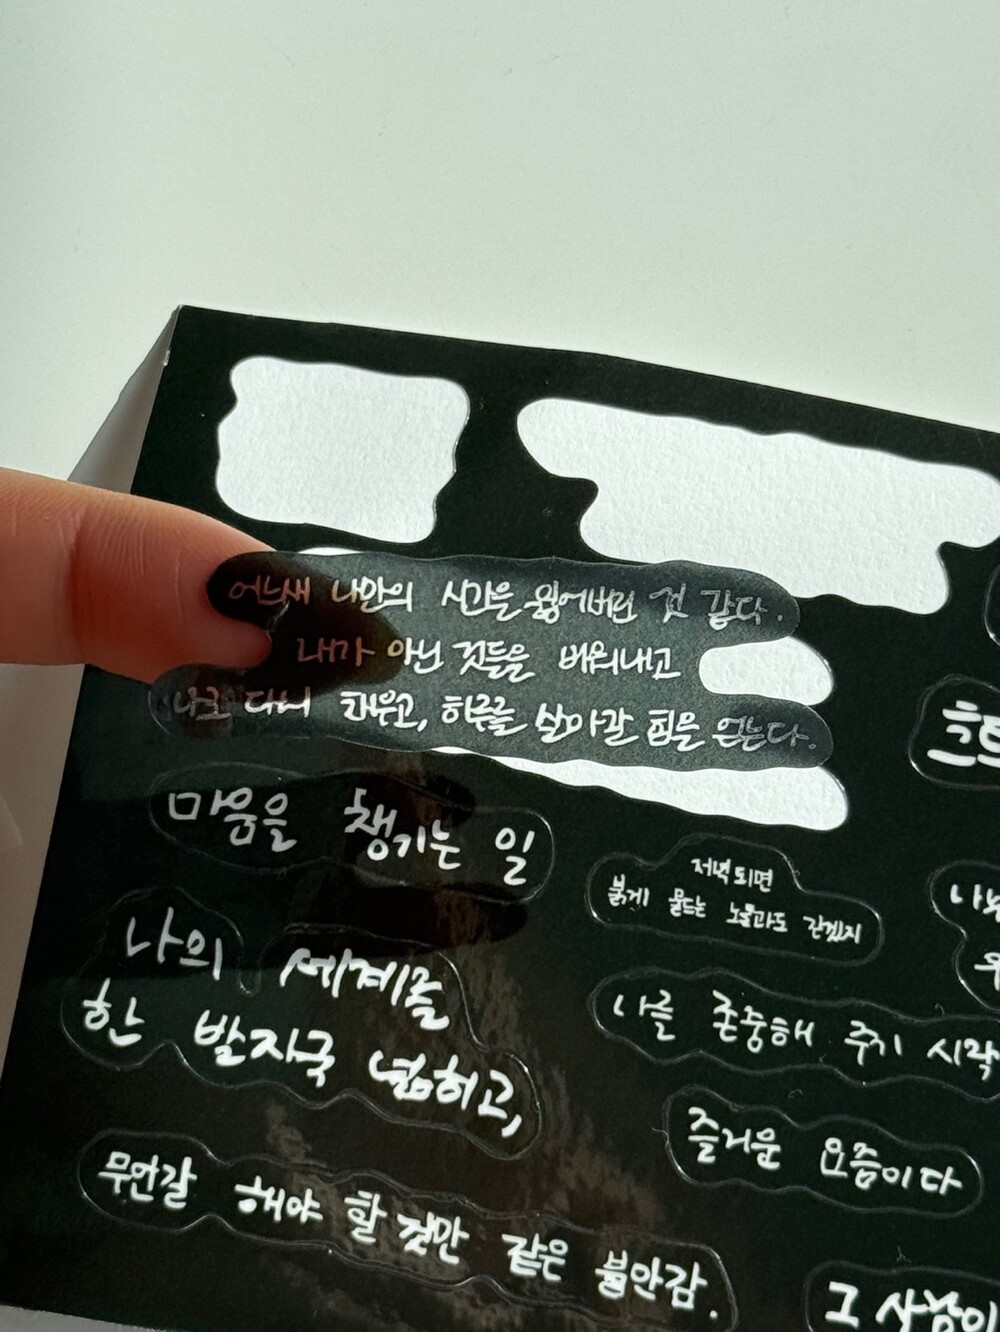 어느새 나만의 시간은 없어버린 것 같다.
내가 아닌 것들을 비워내고
나로 다시 채우고, 하루를 살아갈 힘을 얻는다.
마음을 챙기는 일
저녁 되면
붉게 물드는 노을과도 같겠지
나의 세계를
한 발자국 넓히고,
나를 존중해 주기 시작
즐거운 요즘이다
무언갈 해야 할 것만 같은 불안감.
그 사람이